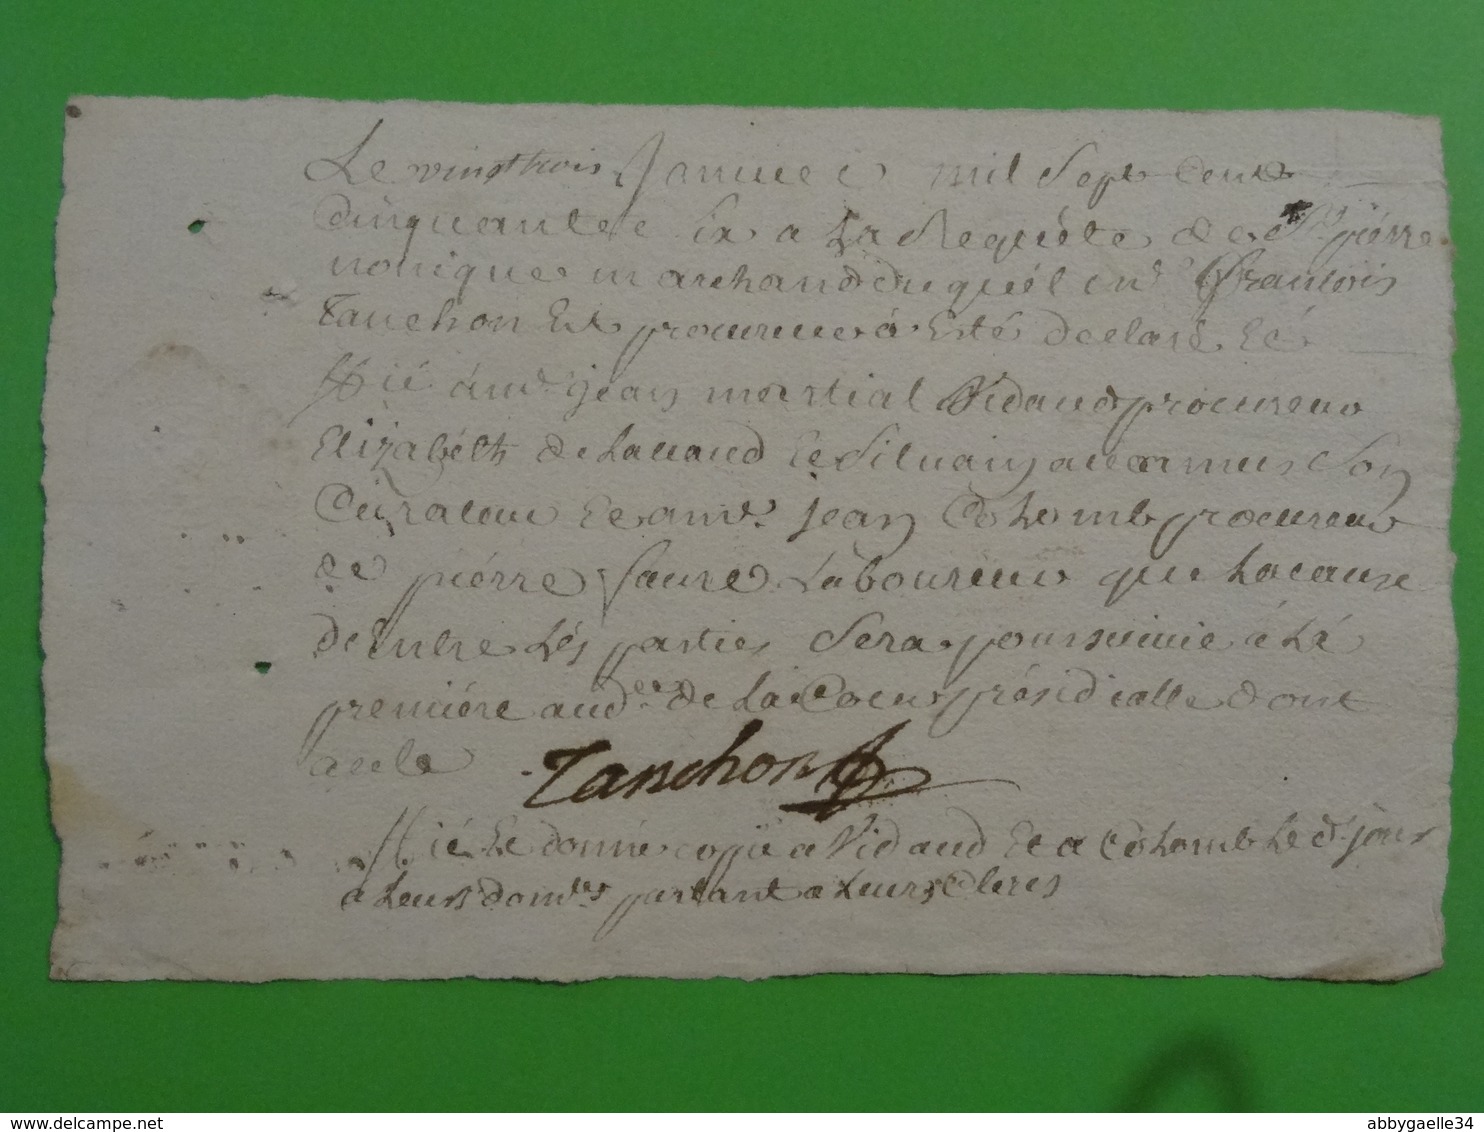 Le vingt trois Janvier mil Sept Cent
Cinquante Six a La Requéte de Sr piérre
monique marchand duquél me francois
Tanchon Est procureur à Esté declaré Et
Sifié a me jean martial Vidaud procureur
Elizabéth de Lavaud Et Silvain Son
Curateur Et a me jean Colomb procureur
de piérre faure Laboureur que La cause
dentre Lés parties Sera poursuivie à La
premiére audce de La Cour présidialle dont
acte
Tanchon
Sifié Et donné copie a Vidaud Et a Colomb Le dt jour
a Leurs domles parlant a Leurs Clercs
delcampe.net
abbygaelle34